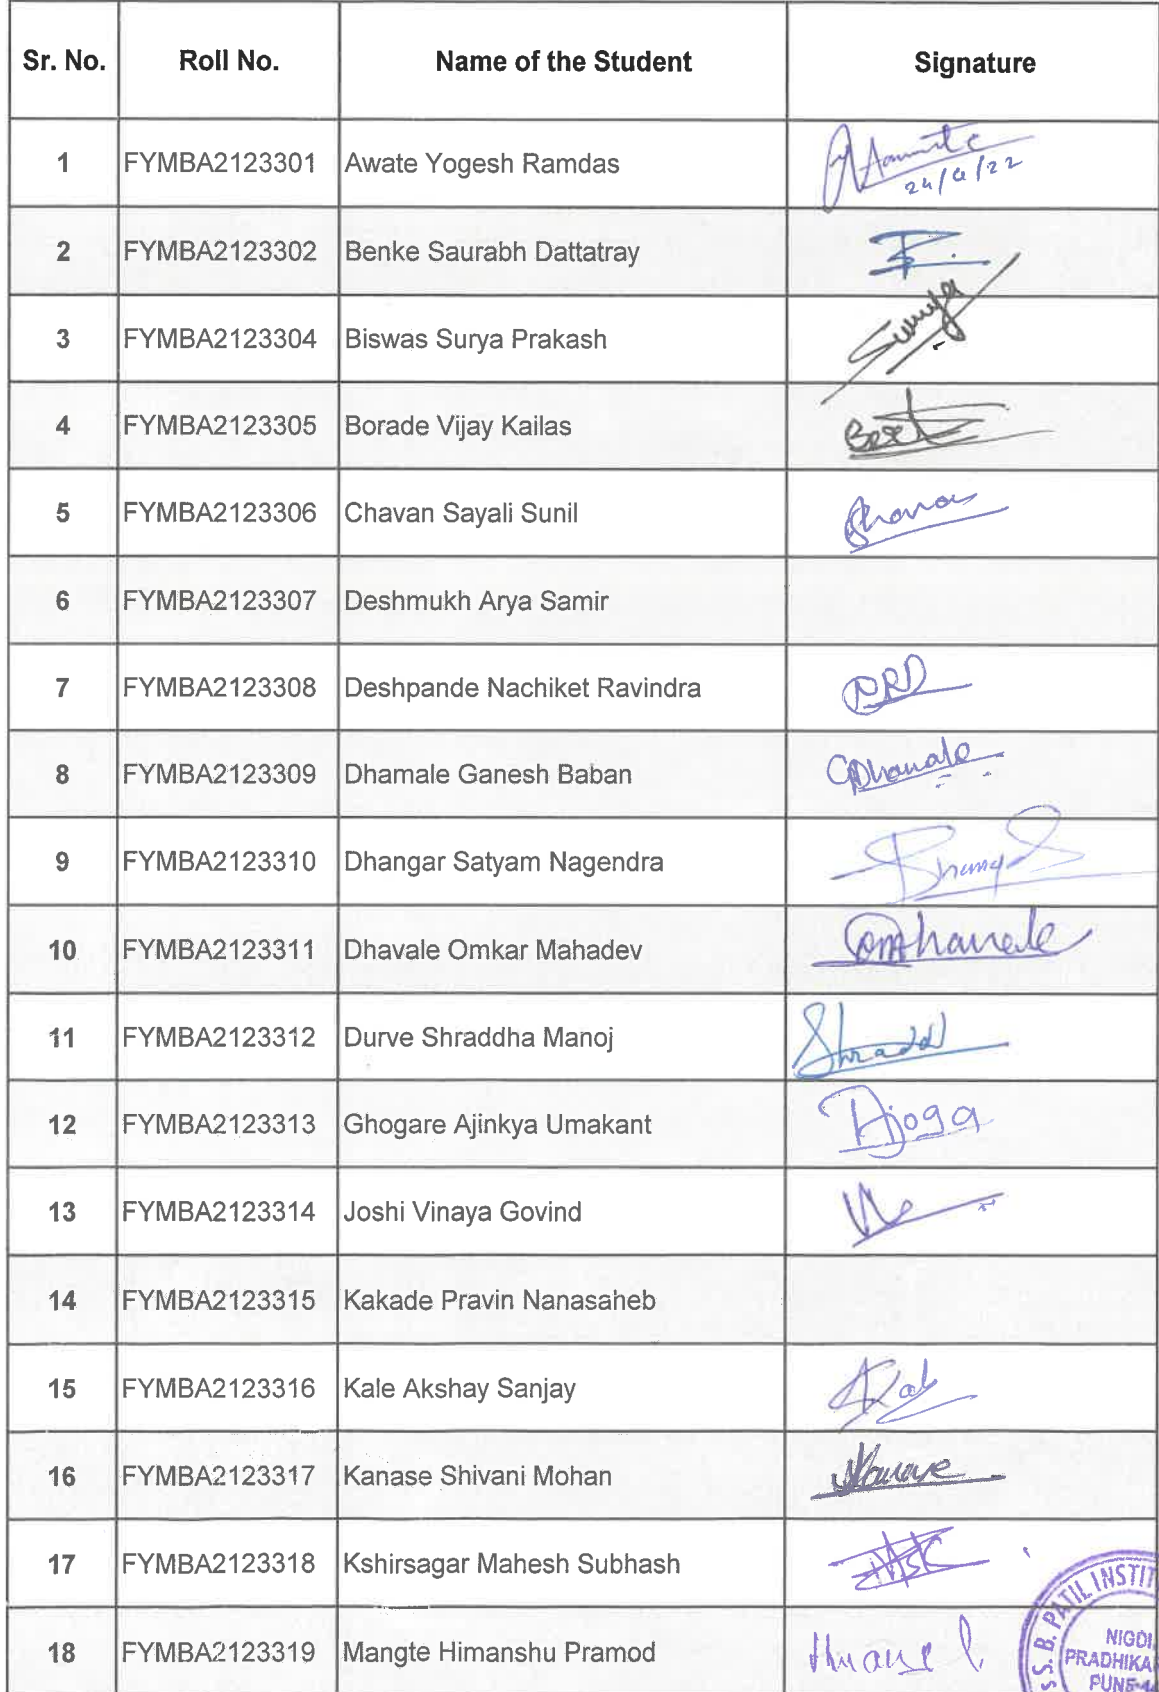 Sr. No. Roll No. Name of the Student Signature
1 FYMBA2123301 Awate Yogesh Ramdas
24/4/22
2 FYMBA2123302 Benke Saurabh Dattatray
3 FYMBA2123304 Biswas Surya Prakash Surya
4 FYMBA2123305 Borade Vijay Kailas
5 FYMBA2123306 Chavan Sayali Sunil
6 FYMBA2123307 Deshmukh Arya Samir
7 FYMBA2123308 Deshpande Nachiket Ravindra NRD
8 FYMBA2123309 Dhamale Ganesh Baban
9 FYMBA2123310 Dhangar Satyam Nagendra
10 FYMBA2123311 Dhavale Omkar Mahadev
11 FYMBA2123312 Durve Shraddha Manoj Shradd
12 FYMBA2123313 Ghogare Ajinkya Umakant
13 FYMBA2123314 Joshi Vinaya Govind
14 FYMBA2123315 Kakade Pravin Nanasaheb
15 FYMBA2123316 Kale Akshay Sanjay
16 FYMBA2123317 Kanase Shivani Mohan
17 FYMBA2123318 Kshirsagar Mahesh Subhash
18 FYMBA2123319 Mangte Himanshu Pramod
S. B. PATIL INSTIT
NIGDI
PRADHIKA
PUNE-4